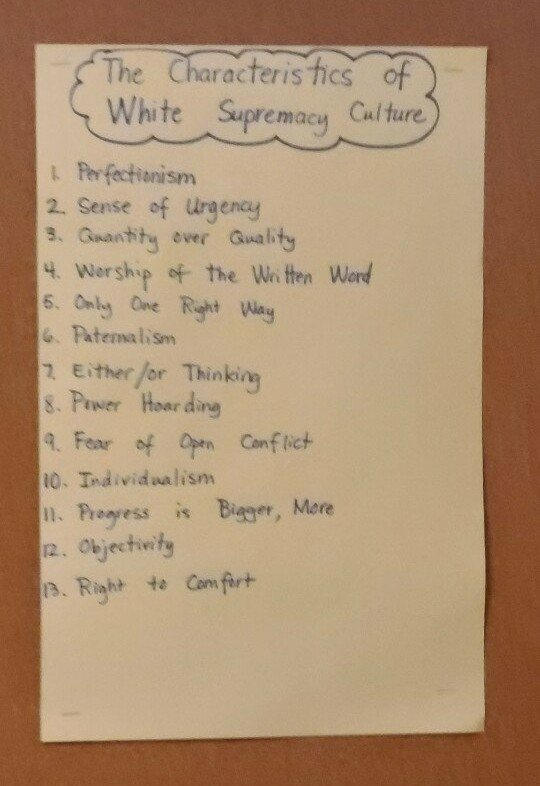 The Characteristics of
White Supremacy Culture
1. Perfectionism
2. Sense of Urgency
3. Quantity over Quality
4. Worship of the Written Word
5. Only One Right Way
6. Paternalism
7. Either/or Thinking
8. Power Hoarding
9. Fear of Open Conflict
10. Individualism
11. Progress is Bigger, More
12. Objectivity
13. Right to Comfort